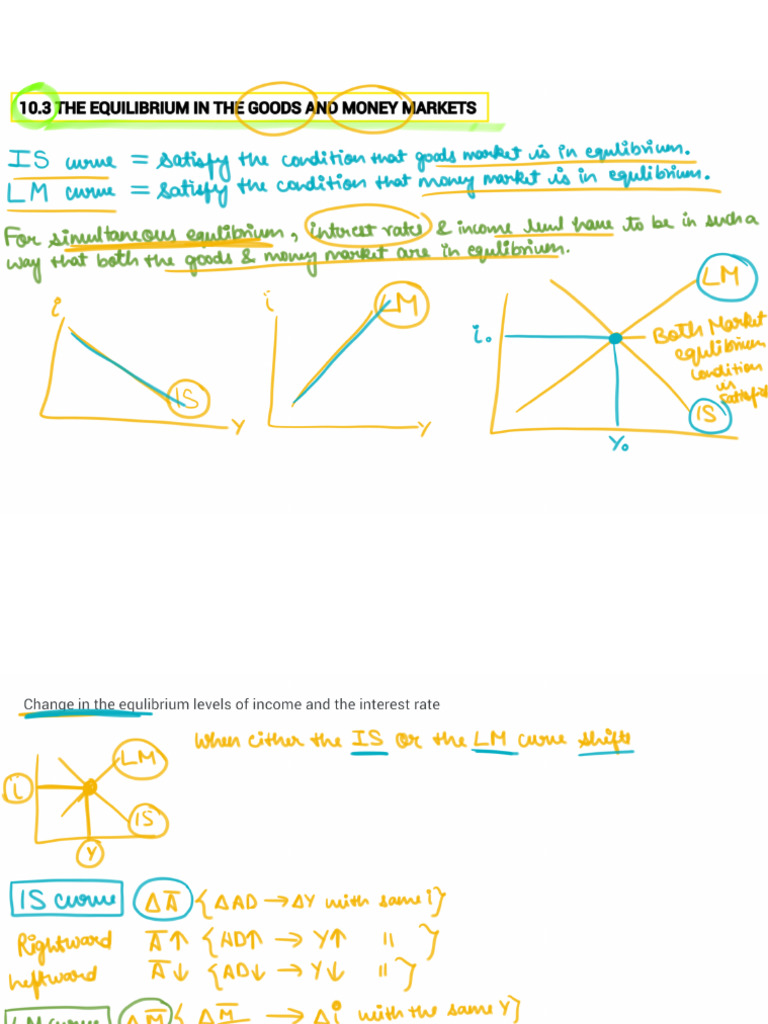 10.3 THE EQUILIBRIUM IN THE GOODS AND MONEY MARKETS
IS curve = satisfy the condition that goods market is in equlibrium.
LM curve = satisfy the condition that money market is in equlibrium.
For simultaneous equlibrium, interest rate & income level have to be in such a
way that both the goods & money market are in equlibrium.
i
IS
Y
i
LM
Y
LM
i₀
Both Market
equlibrium
condition
is
satisfied
IS
Y₀
Change in the equlibrium levels of income and the interest rate
When either the IS or the LM curve shifts
LM
i
IS
Y
IS curve ΔA̅ {ΔAD → ΔY with same i}
Rightward A̅↑ {AD↑ → Y↑ 〃 }
Leftward A̅↓ {AD↓ → Y↓ 〃 }
LM curve ΔM̅ { ΔM̅ → Δi with the same Y}